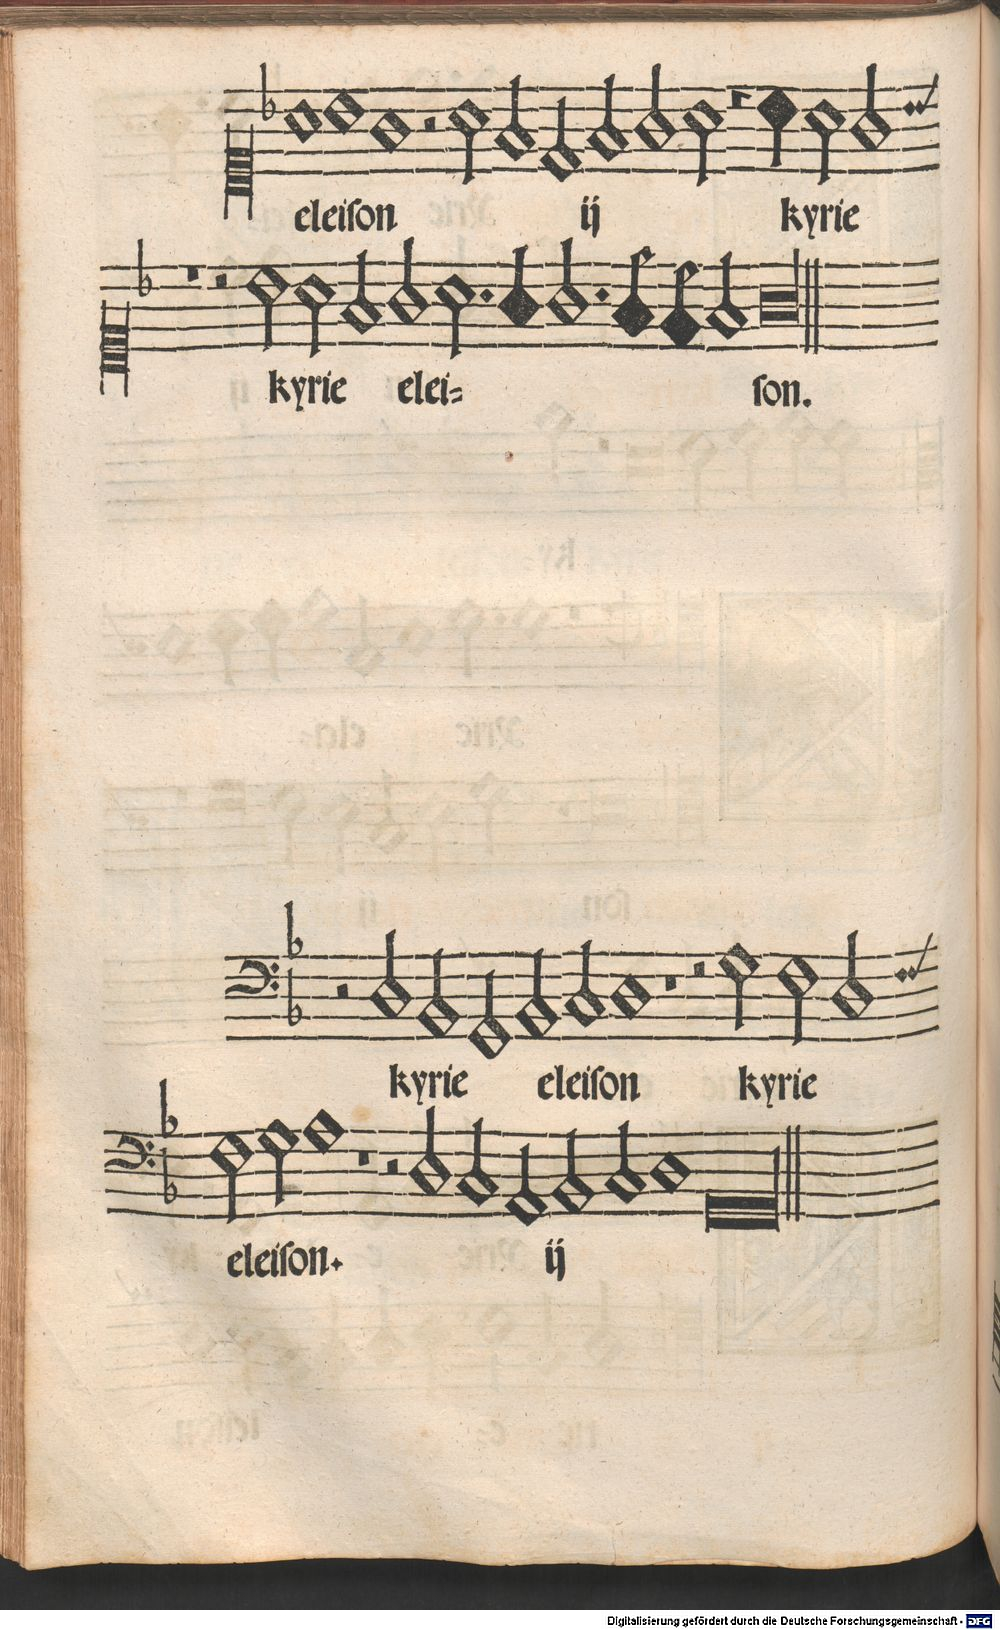 eleiſon ij kyrie
kyrie elei= ſon.
kyrie eleiſon kyrie
eleiſon. ij
Digitalisierung gefördert durch die Deutsche Forschungsgemeinschaft - DFG